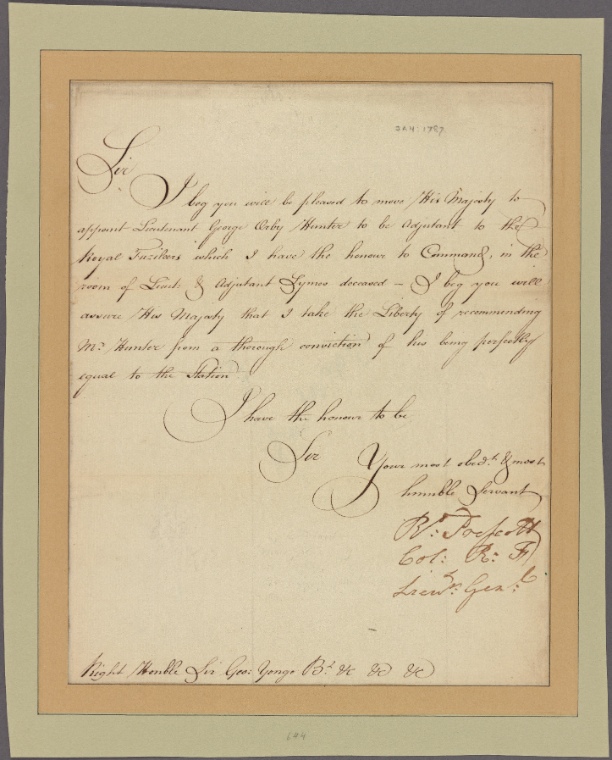 JAN: 1787
Sir
I beg you will be pleased to move His Majesty to
appoint Lieutenant George Orby Hunter to be Adjutant to the
Royal Fuzileers which I have the honour to Command, in the
room of Lieut: & Adjutant Symes deceased – I beg you will
assure His Majesty that I take the Liberty of recommending
Mr: Hunter from a thorough conviction of his being perfectly
equal to the Station
I have the honour to be
Sir
Your most obedt. & most
humble Servant
Rd: Prescott
Col: R: F
Lieut: Genl:
Right Honble Sir Geo: Yonge Bt. &c &c &c